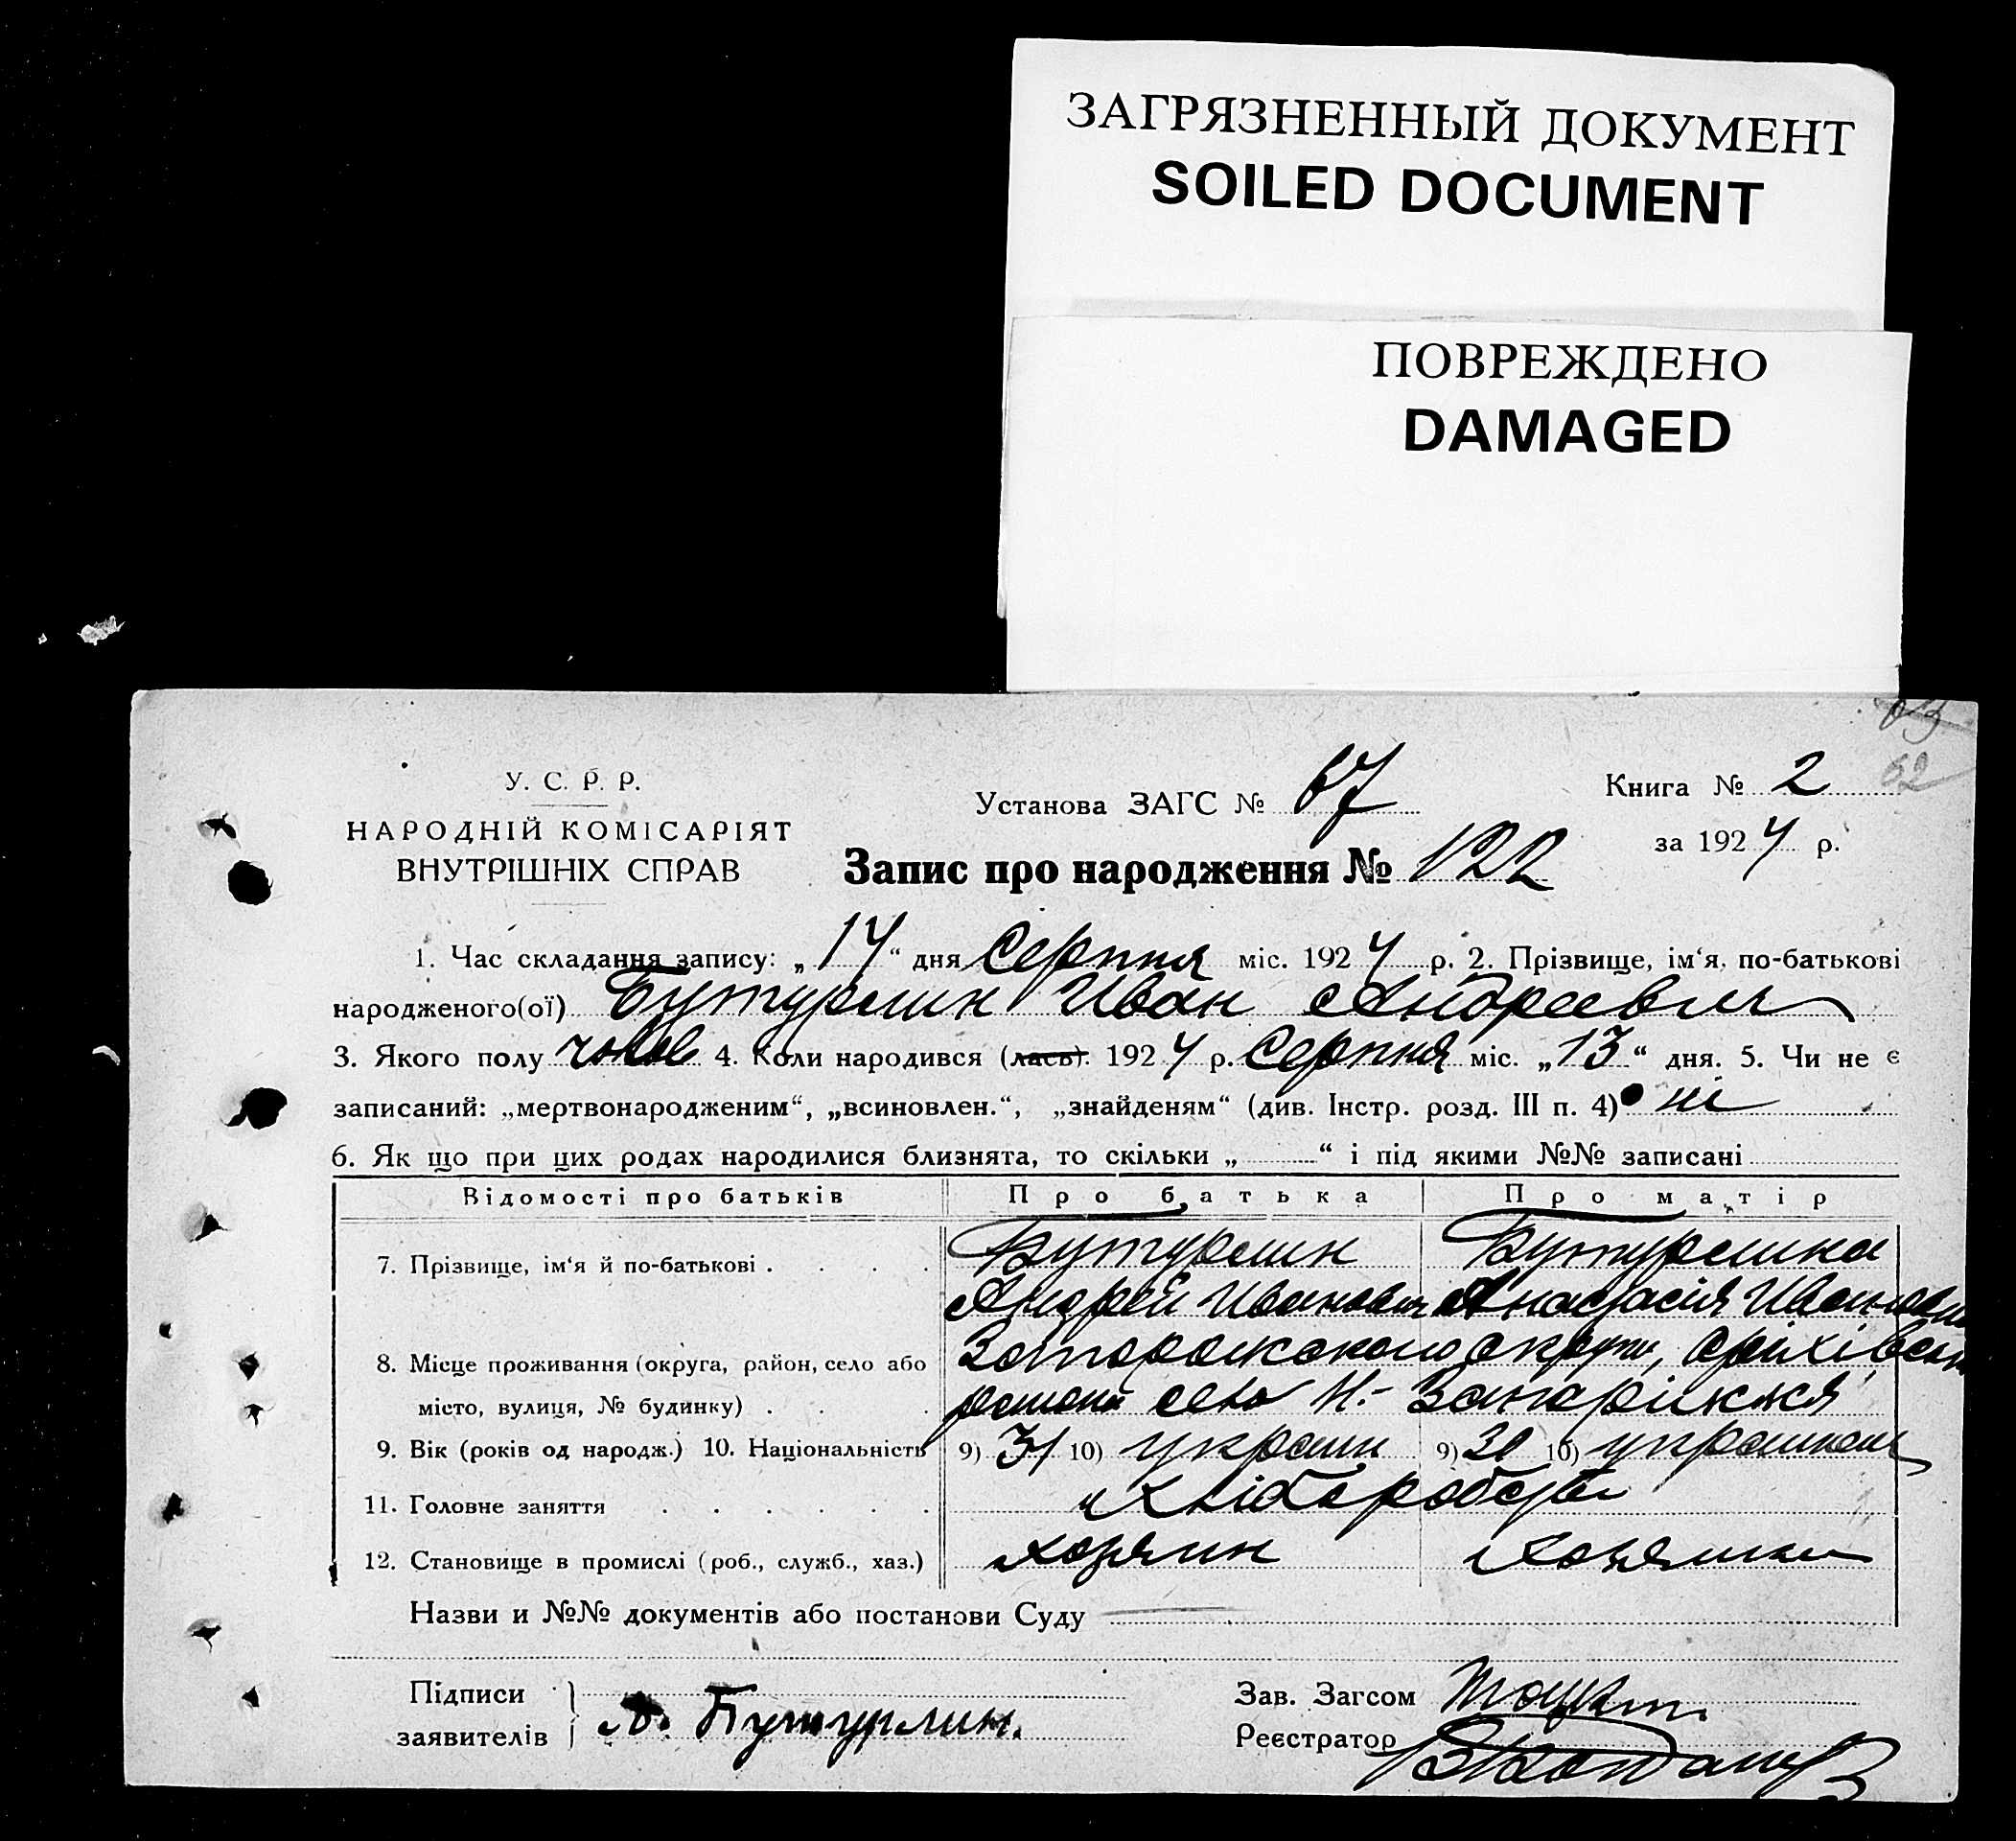 ЗАГРЯЗНЕННЫЙ ДОКУМЕНТ
SOILED DOCUMENT
ПОВРЕЖДЕНО
DAMAGED
63
62
У. С. Р. Р.
НАРОДНІЙ КОМІСАРІЯТ
ВНУТРІШНІХ СПРАВ
Установа ЗАГС № 67
Книга № 2
за 1924 р.
Запис про народження № 122
1. Час складання запису: „14“ дня Серпня міс. 1924 р. 2. Прізвище, ім‘я, по-батькові
народженого(ої) Бутурлин Иван Андреевич
3. Якого полу чолов 4. Коли народився (лась) 1924 р. Серпня міс. „13“ дня. 5. Чи не є
записаний: „мертвонародженим“, „всиновлен.“, „знайденям“ (див. Інстр. розд. III п. 4) ні
6. Як що при цих родах народилися близнята, то скільки „ “ і під якими №№ записані
Відомості про батьків Про батька Про матір
7. Прізвище, ім‘я й по-батькові . . . . Бутурлин Бутурлина
Андрей Иванович Анастасія Ивановна
8. Місце проживання (округа, район, село або Запорожского округи, Оріхівськ
місто, вулиця, № будинку) . . . район село Н.- Запоріжжя
9. Вік (років од народж.) 10. Національність 9) 31 10) украин 9) 30 10) украинка
11. Головне заняття . . . . . . Хліборобство
12. Становище в промислі (роб., служб., хаз.) хозяин хозяйка
Назви и №№ документів або постанови Суду
Підписи
заявителів А. Бутурлин.
Зав. Загсом
Реєстратор